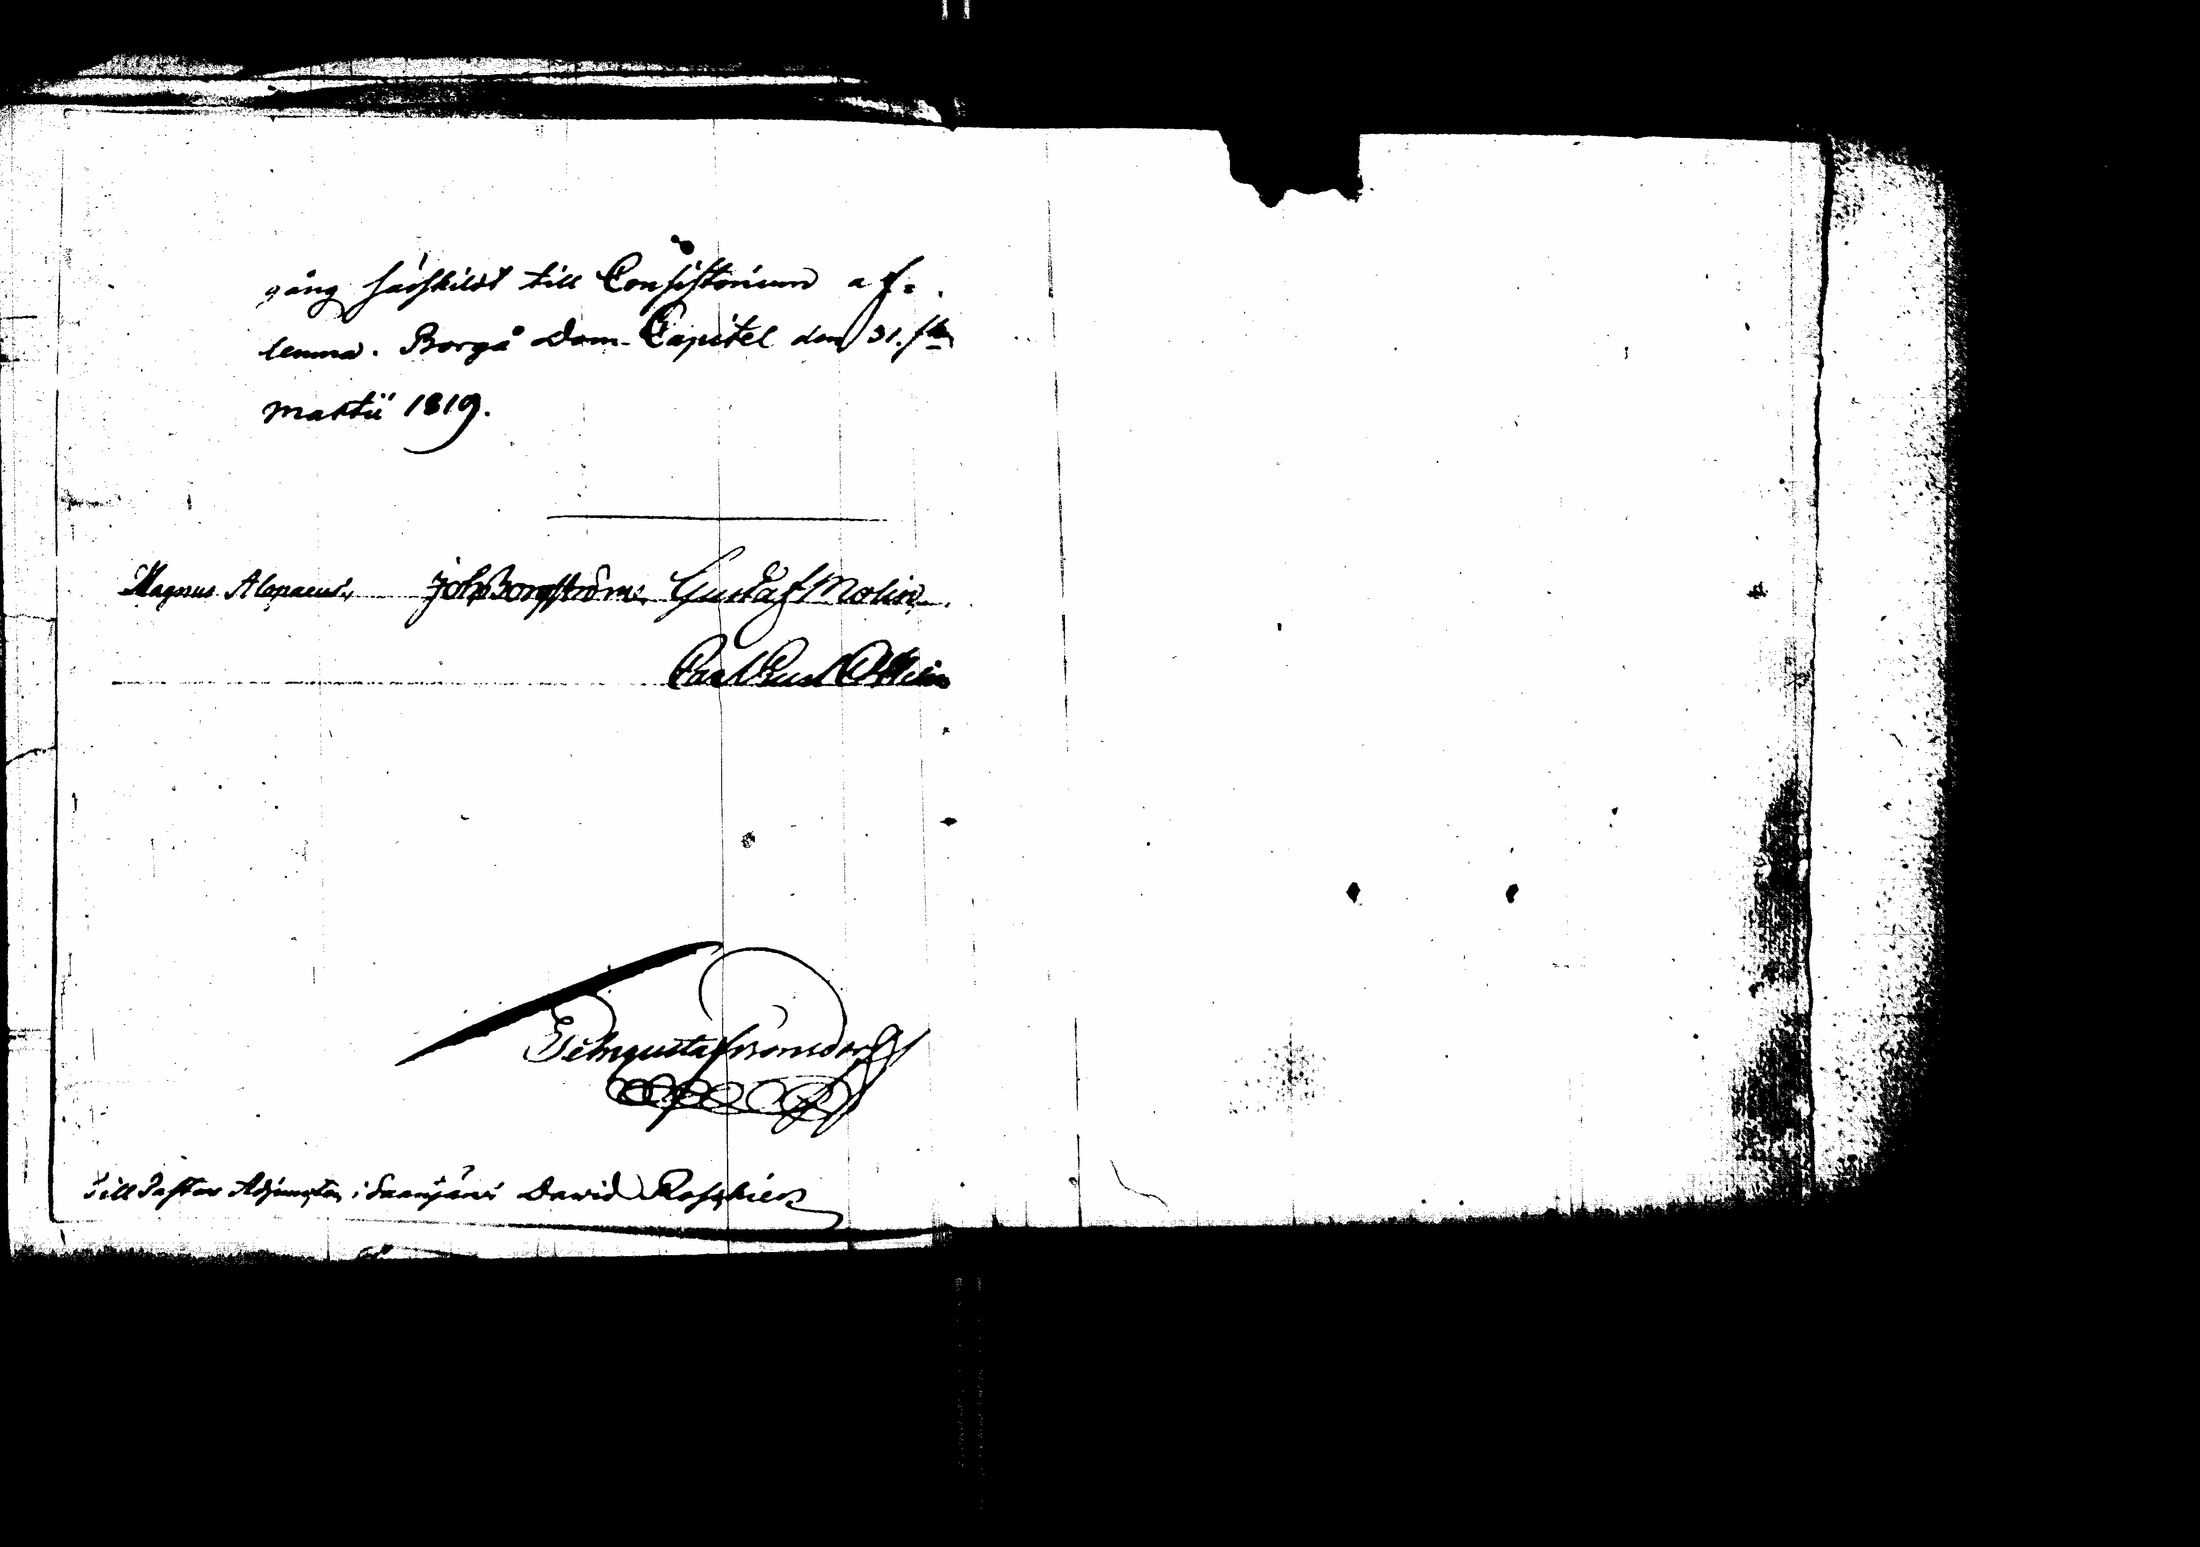 gång särskildt till Consistorium af=
lemna. Borgå Dom-Capitel den 31.sta
Martii 1819.
Magnus Alopaeus. Joh. Borgström. Gustaf Molin.
Carl
Till Pastors Adjuncten i Saarijärvi David Roschier